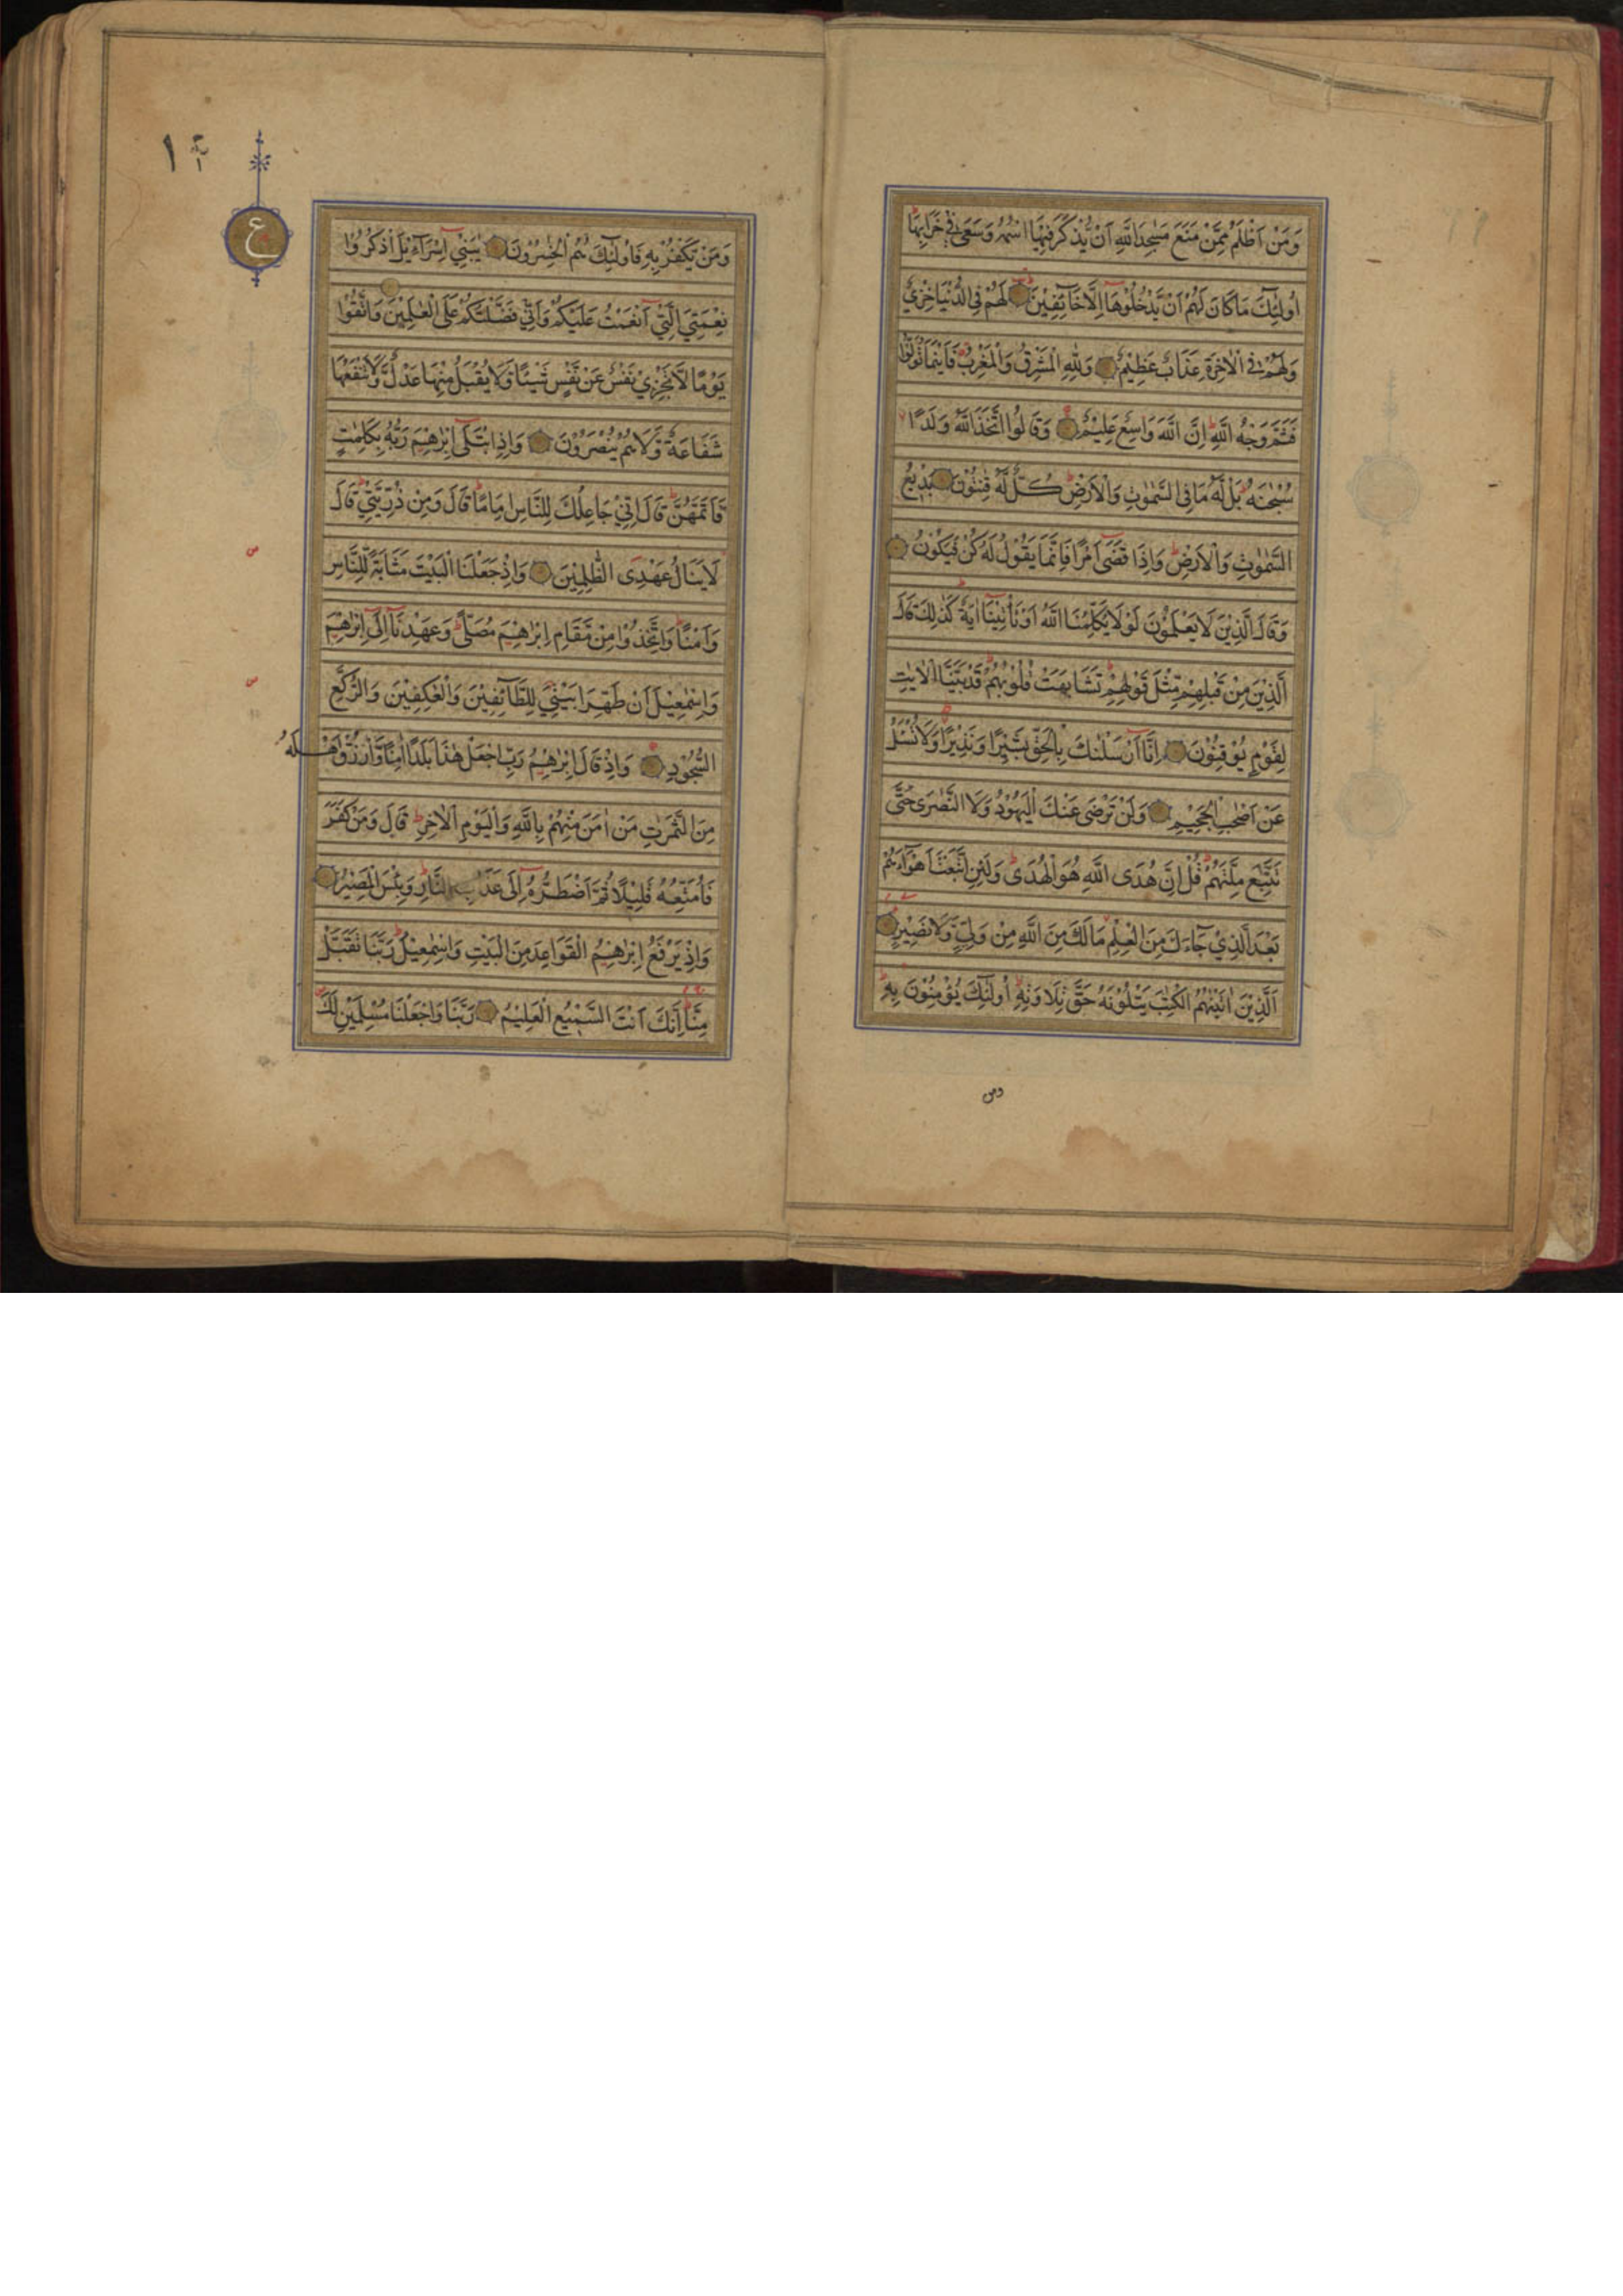 وَمَنْ اَظْلَمُ مِمَّنْ مَنَعَ مَسٰجِدَ اللّٰهِ اَنْ يُّذْكَرَ فِيْهَا اسْمُهٗ وَسَعٰى فِيْ خَرَابِهَا ط
اُولٰٓئِكَ مَا كَانَ لَهُمْ اَنْ يَّدْخُلُوْهَا اِلَّا خَآئِفِيْنَ لَهُمْ فِي الدُّنْيَا خِزْيٌ
وَلَهُمْ فِي الْاٰخِرَةِ عَذَابٌ عَظِيْمٌ وَلِلّٰهِ الْمَشْرِقُ وَالْمَغْرِبُ فَاَيْنَمَا تُوَلُّوْا
فَثَمَّ وَجْهُ اللّٰهِ ط اِنَّ اللّٰهَ وَاسِعٌ عَلِيْمٌ وَقَالُوا اتَّخَذَ اللّٰهُ وَلَدًا لا
سُبْحٰنَهٗ ط بَلْ لَّهٗ مَا فِي السَّمٰوٰتِ وَالْاَرْضِ ط كُلٌّ لَّهٗ قٰنِتُوْنَ بَدِيْعُ
السَّمٰوٰتِ وَالْاَرْضِ ط وَاِذَا قَضٰٓى اَمْرًا فَاِنَّمَا يَقُوْلُ لَهٗ كُنْ فَيَكُوْنُ
وَقَالَ الَّذِيْنَ لَا يَعْلَمُوْنَ لَوْلَا يُكَلِّمُنَا اللّٰهُ اَوْ تَأْتِيْنَآ اٰيَةٌ ط كَذٰلِكَ قَالَ
الَّذِيْنَ مِنْ قَبْلِهِمْ مِّثْلَ قَوْلِهِمْ ط تَشَابَهَتْ قُلُوْبُهُمْ ط قَدْ بَيَّنَّا الْاٰيٰتِ
لِقَوْمٍ يُّوْقِنُوْنَ اِنَّآ اَرْسَلْنٰكَ بِالْحَقِّ بَشِيْرًا وَّنَذِيْرًا وَّلَا تُسْـَٔلُ
عَنْ اَصْحٰبِ الْجَحِيْمِ وَلَنْ تَرْضٰى عَنْكَ الْيَهُوْدُ وَلَا النَّصٰرٰى حَتّٰى
تَتَّبِعَ مِلَّتَهُمْ ط قُلْ اِنَّ هُدَى اللّٰهِ هُوَ الْهُدٰى ط وَلَئِنِ اتَّبَعْتَ اَهْوَآءَهُمْ
بَعْدَ الَّذِيْ جَآءَكَ مِنَ الْعِلْمِ لا مَا لَكَ مِنَ اللّٰهِ مِنْ وَّلِيٍّ وَّلَا نَصِيْرٍ
اَلَّذِيْنَ اٰتَيْنٰهُمُ الْكِتٰبَ يَتْلُوْنَهٗ حَقَّ تِلَاوَتِهٖ ط اُولٰٓئِكَ يُؤْمِنُوْنَ بِهٖ ط
ومن
ع
وَمَنْ يَّكْفُرْ بِهٖ فَاُولٰٓئِكَ هُمُ الْخٰسِرُوْنَ يٰبَنِيْٓ اِسْرَآءِيْلَ اذْكُرُوْا
نِعْمَتِيَ الَّتِيْٓ اَنْعَمْتُ عَلَيْكُمْ وَاَنِّيْ فَضَّلْتُكُمْ عَلَى الْعٰلَمِيْنَ وَاتَّقُوْا
يَوْمًا لَّا تَجْزِيْ نَفْسٌ عَنْ نَّفْسٍ شَيْئًا وَّلَا يُقْبَلُ مِنْهَا عَدْلٌ وَّلَا تَنْفَعُهَا
شَفَاعَةٌ وَّلَا هُمْ يُنْصَرُوْنَ وَاِذِ ابْتَلٰٓى اِبْرٰهِيْمَ رَبُّهٗ بِكَلِمٰتٍ
فَاَتَمَّهُنَّ ط قَالَ اِنِّيْ جَاعِلُكَ لِلنَّاسِ اِمَامًا ط قَالَ وَمِنْ ذُرِّيَّتِيْ ط قَالَ
لَا يَنَالُ عَهْدِى الظّٰلِمِيْنَ وَاِذْ جَعَلْنَا الْبَيْتَ مَثَابَةً لِّلنَّاسِ
وَاَمْنًا ط وَاتَّخِذُوْا مِنْ مَّقَامِ اِبْرٰهِيْمَ مُصَلًّى ط وَعَهِدْنَآ اِلٰٓى اِبْرٰهِيْمَ
وَاِسْمٰعِيْلَ اَنْ طَهِّرَا بَيْتِيَ لِلطَّآئِفِيْنَ وَالْعٰكِفِيْنَ وَالرُّكَّعِ
السُّجُوْدِ وَاِذْ قَالَ اِبْرٰهِيْمُ رَبِّ اجْعَلْ هٰذَا بَلَدًا اٰمِنًا وَّارْزُقْ اَهْلَهٗ
مِنَ الثَّمَرٰتِ مَنْ اٰمَنَ مِنْهُمْ بِاللّٰهِ وَالْيَوْمِ الْاٰخِرِ ط قَالَ وَمَنْ كَفَرَ
فَاُمَتِّعُهٗ قَلِيْلًا ثُمَّ اَضْطَرُّهٗٓ اِلٰى عَذَابِ النَّارِ ط وَبِئْسَ الْمَصِيْرُ
وَاِذْ يَرْفَعُ اِبْرٰهِيْمُ الْقَوَاعِدَ مِنَ الْبَيْتِ وَاِسْمٰعِيْلُ ط رَبَّنَا تَقَبَّلْ
مِنَّا ط اِنَّكَ اَنْتَ السَّمِيْعُ الْعَلِيْمُ رَبَّنَا وَاجْعَلْنَا مُسْلِمَيْنِ لَكَ